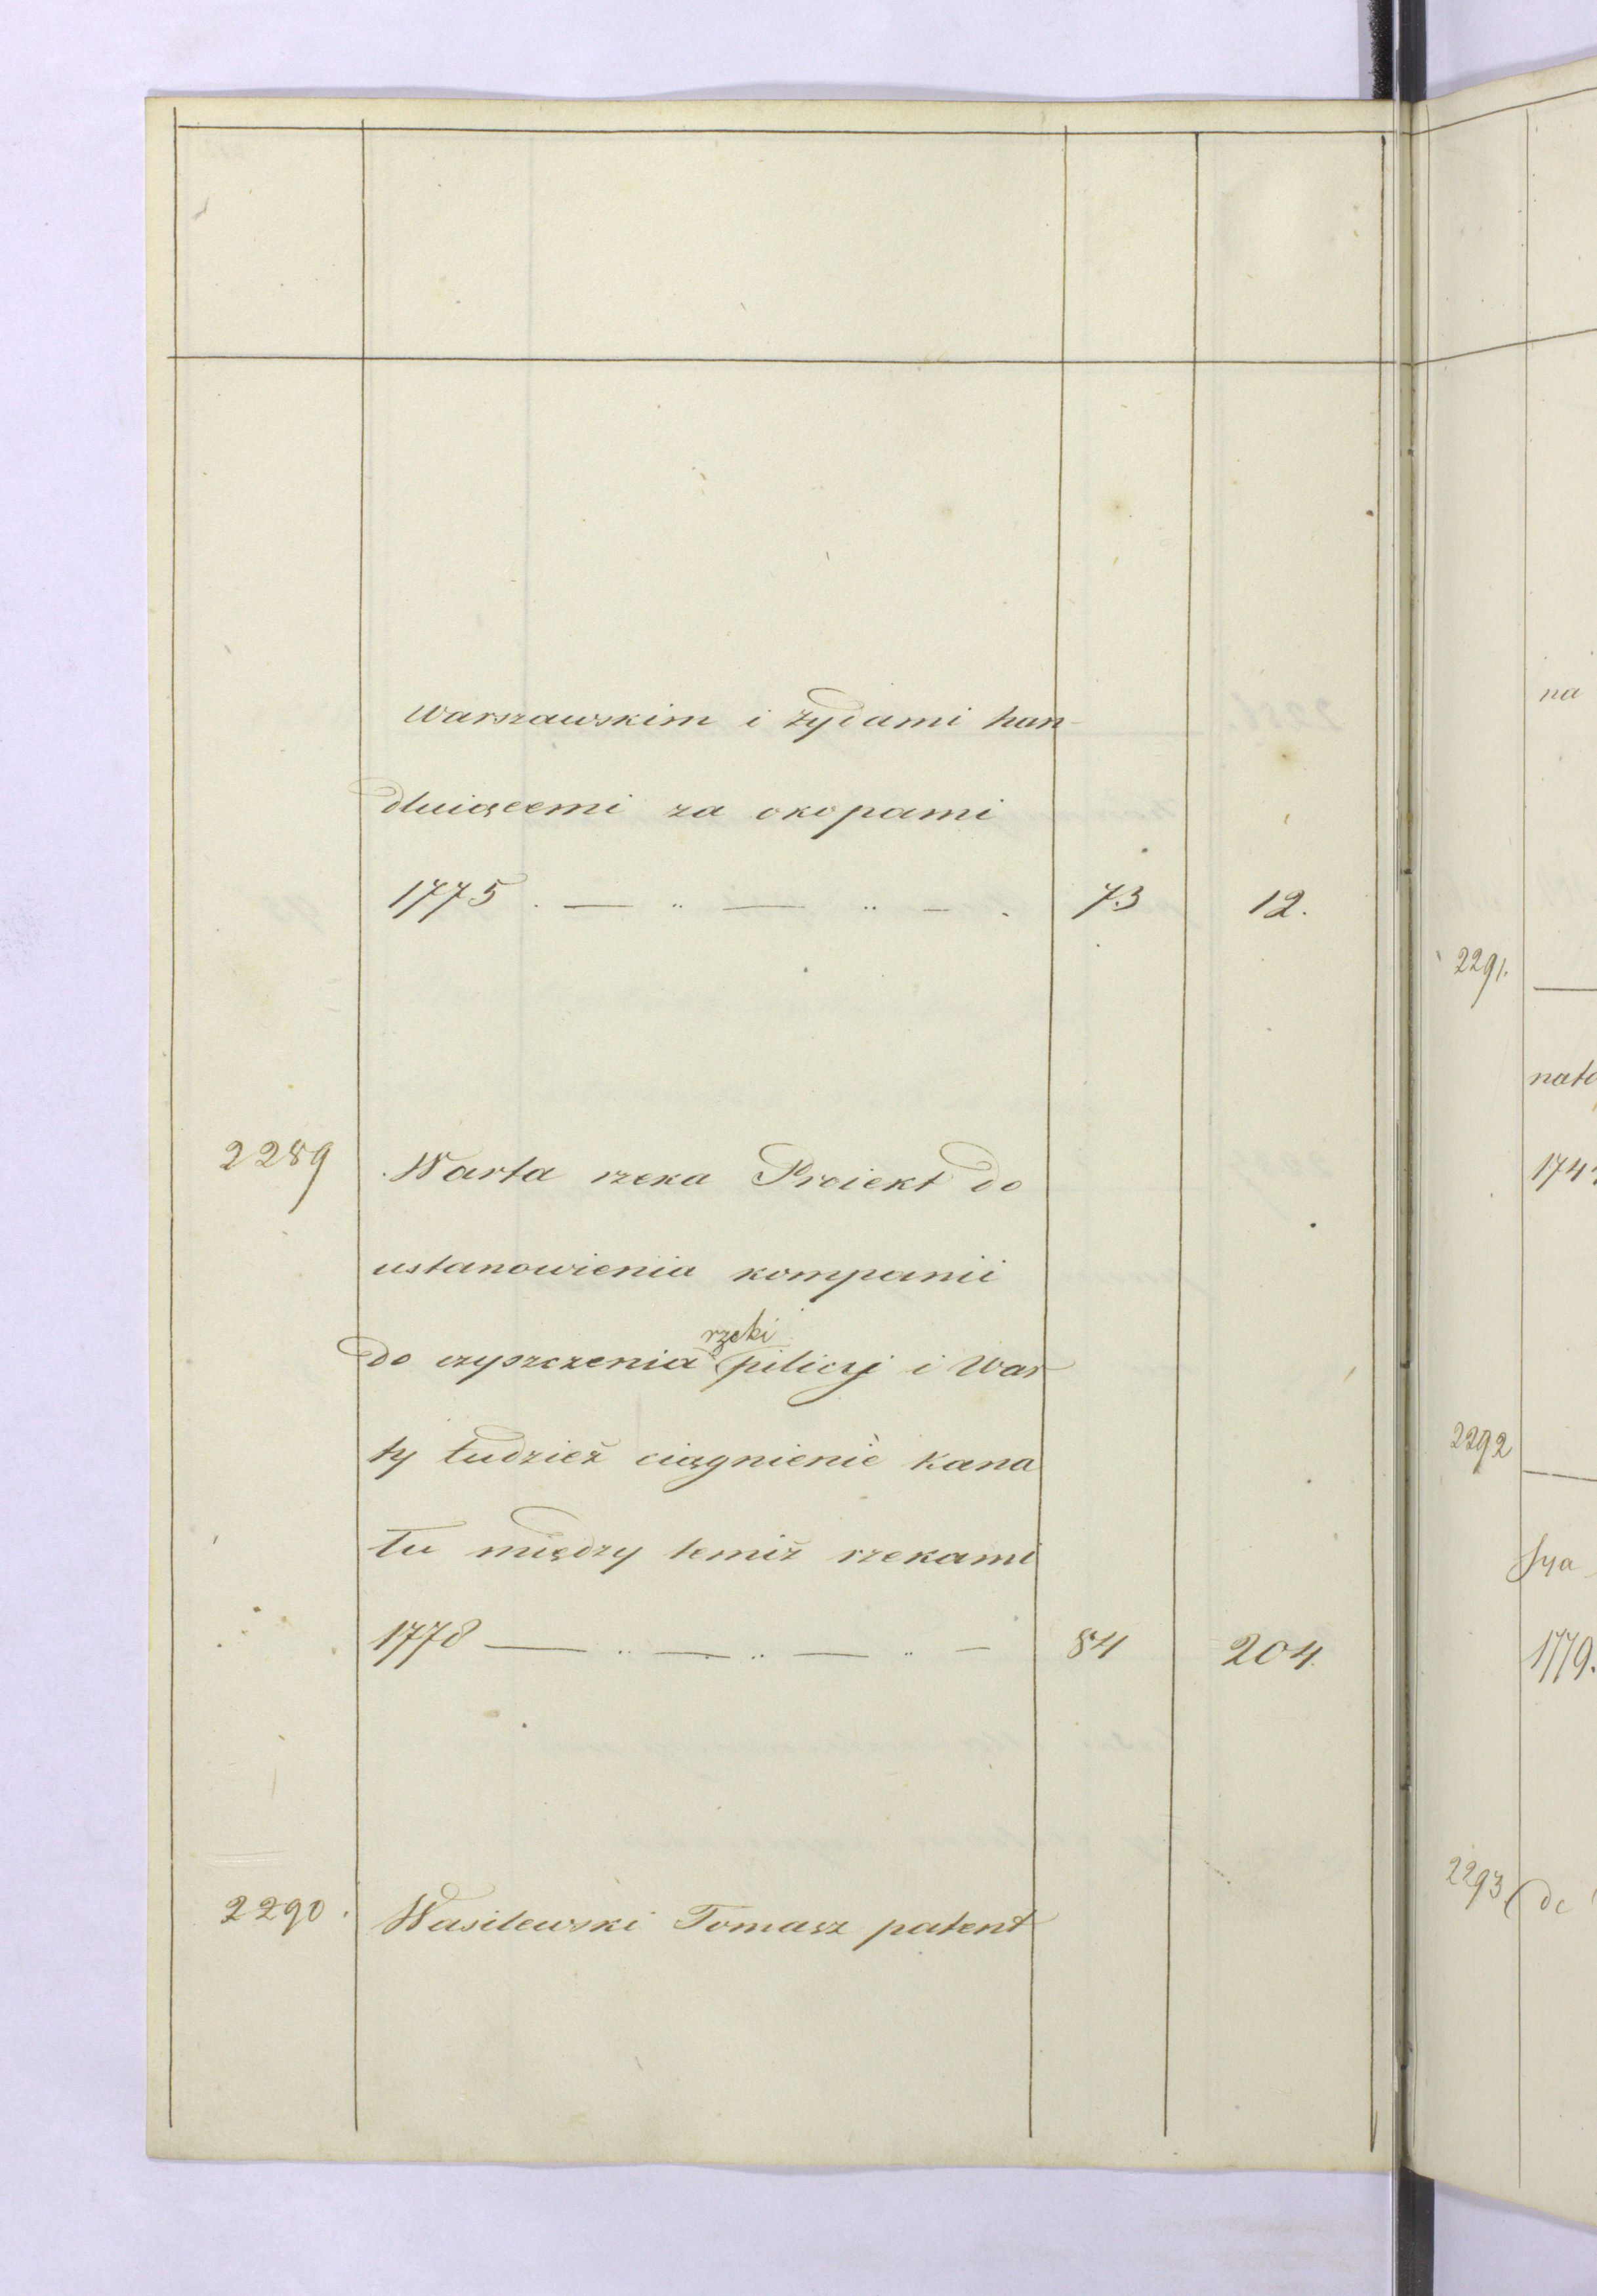 warszawskim i żydami han-
dluiącemi za okopami
1775 . — .. — .. — . 73 12.
2289 Warta rzeka Proiekt do
ustanowienia kompanii
rzeki
do czyszczenia pilicy i War
ty tudzież ciągnienie Kana
łu między temiż rzekami
1778 — .. — .. — .. — 84 204.
2290. Wasilewski Tomasz patent
na
2291.
nato
174
2292
sya
1779.
2293 de